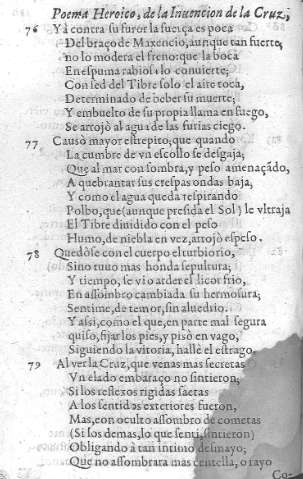 Poema Heroico, de la Inuencion de la Cruz,
76 Yà contra su furor la fuerça es poca
Del braço de Maxencio, aunque tan fuerte,
no lo modera el freno: que la boca
En espuma rabiosa lo conuierte;
Con sed del Tibre solo el aire toca,
Determinado de beber su muerte;
Y embuelto de su propia llama en fuego,
Se arrojò al agua de las furias ciego.
77 Causò mayor estrepito, que quando
La cumbre de vn escollo se desgaja,
Que al mar con sombra, y peso amenaçãdo,
A quebrantar sus crespas ondas baja,
Y como el agua queda respirando
Polbo, que (aunque presida el Sol) le vltraja
El Tibre diuidido con el peso
Humo, de niebla en vez, arrojò espeso.
78 Quedòse con el cuerpo el turbio rio,
Sino tuuo mas honda sepultura;
Y tiempo, se vio arder el licor frio,
En assombro cambiada su hermosura;
Sentime, de temor, sin aluedrio.
Y assi, como el que, en parte mal segura
quiso, fijar los pies, y pisò en vago,
Siguiendo la vitoria, hallè el estrago.
79 Al ver la Cruz, que venas mas secretas
Vn elado embaraço no sintieron,
Si los reflexos rigidas saetas
A los sentidos exteriores fueron,
Mas, con oculto assombro de cometas
(Si los demas, lo que sentì, sintieron)
Obligando à tan intimo desmayo;
Que no assombrara mas centella, o rayo
Co-